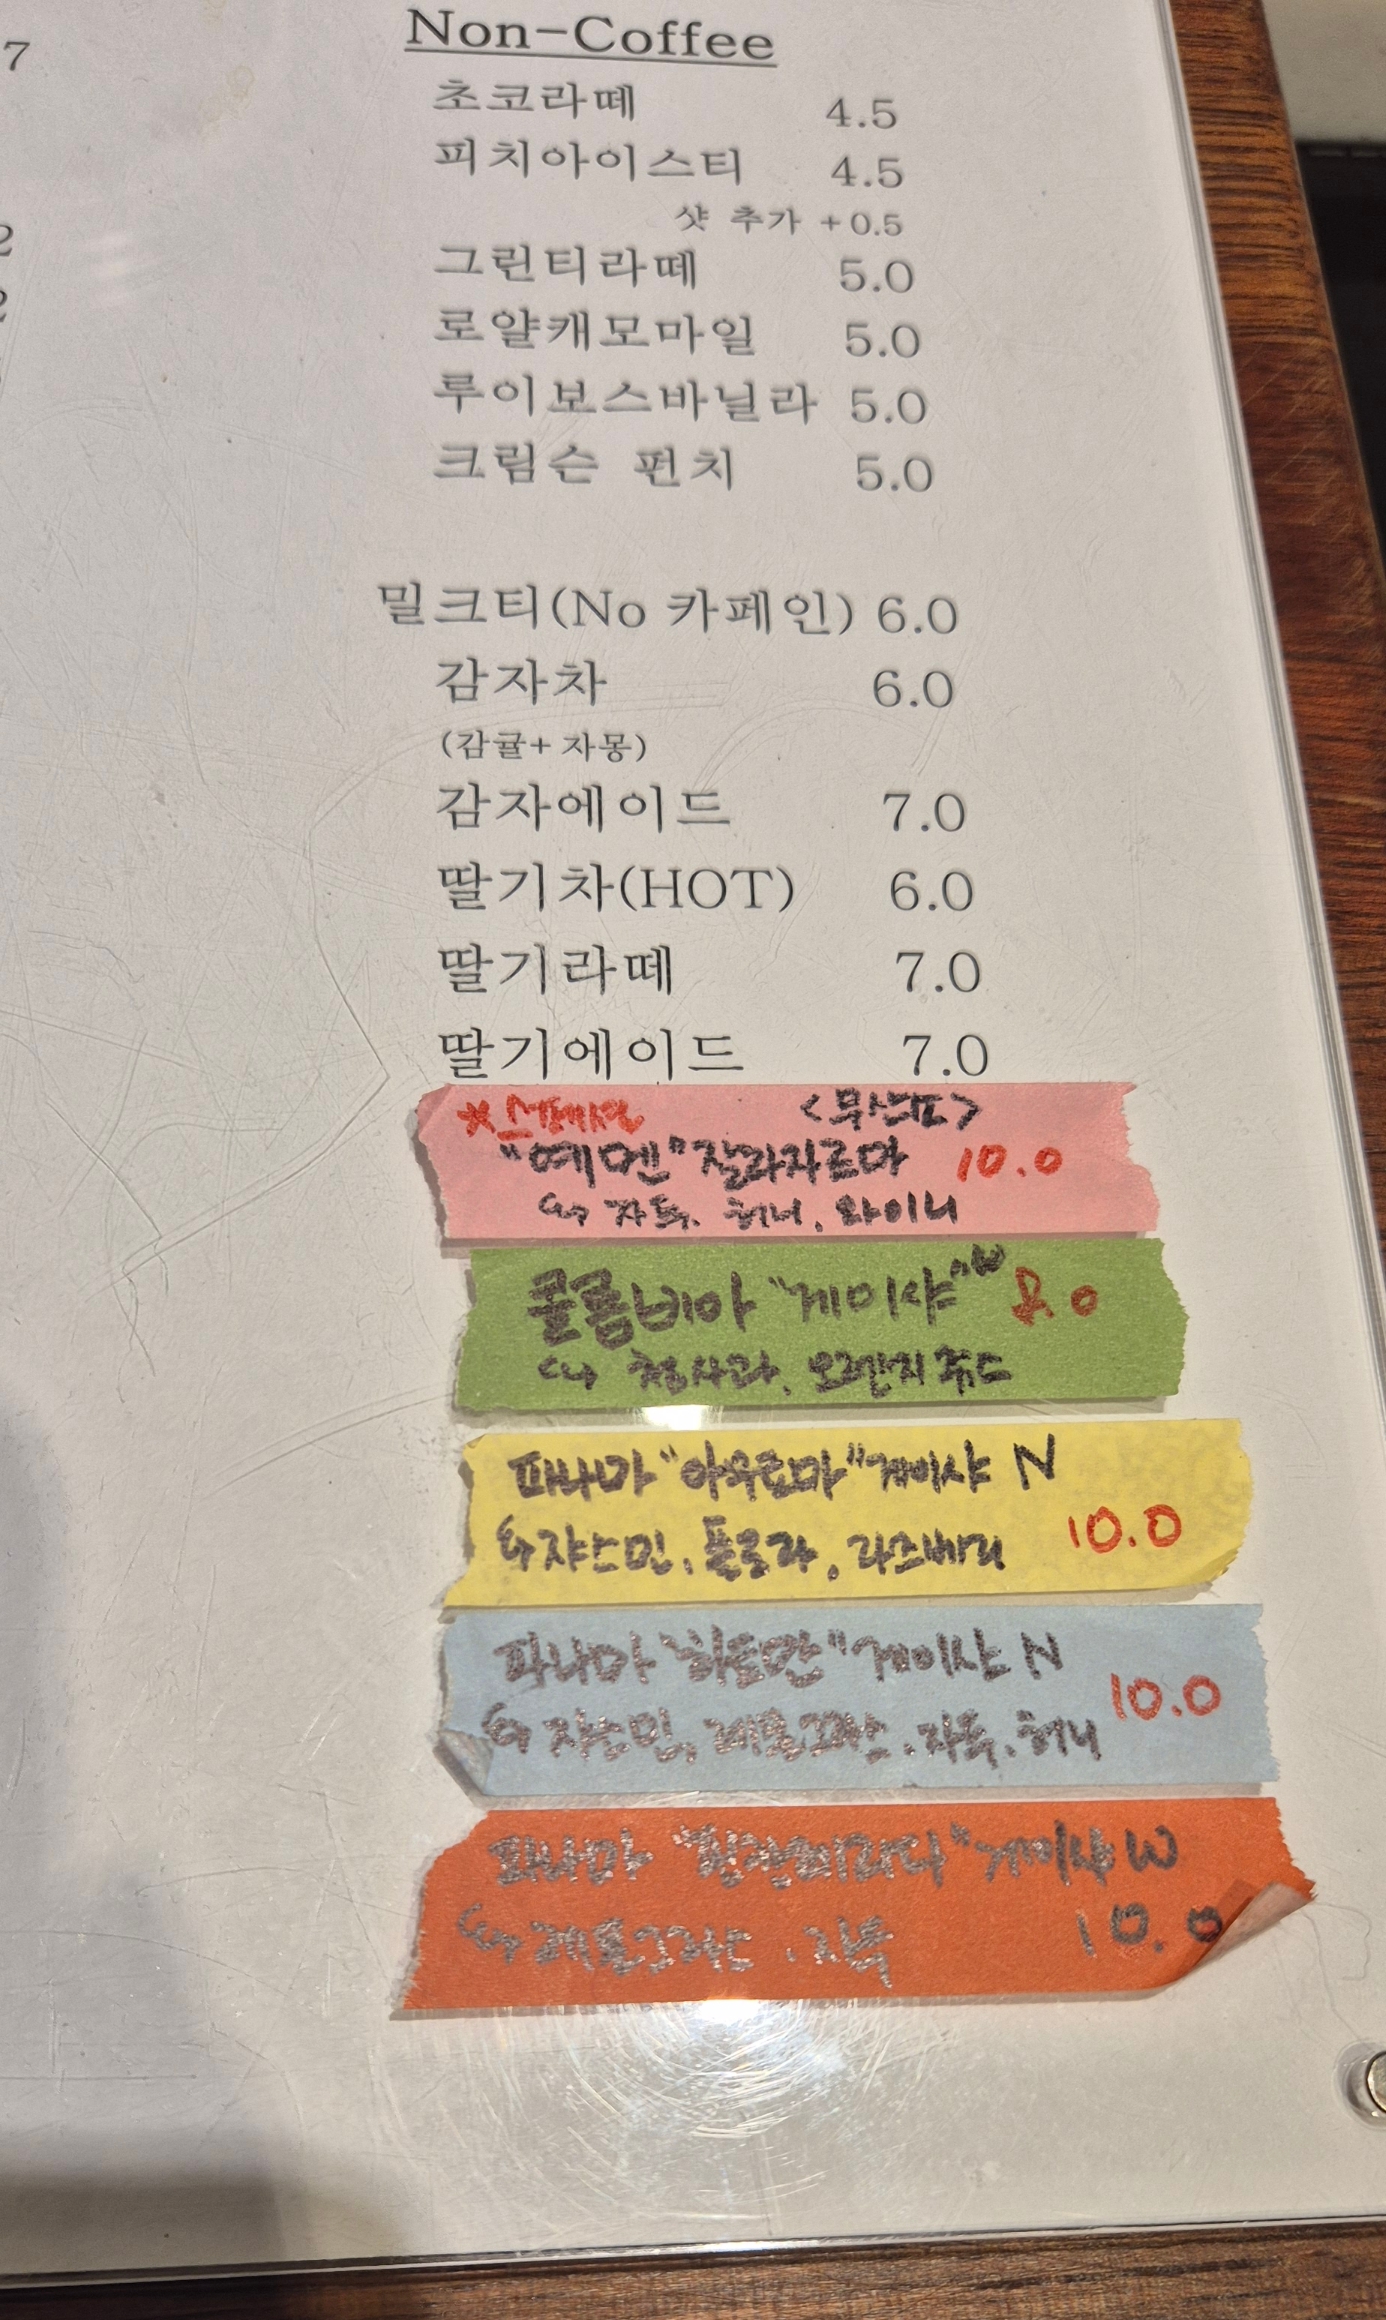 7
Non-Coffee
초코라떼 4.5
피치아이스티 4.5
샷 추가 +0.5
그린티라떼 5.0
로얄캐모마일 5.0
루이보스바닐라 5.0
크림슨 펀치 5.0
밀크티(No 카페인) 6.0
감자차 6.0
(감귤+자몽)
감자에이드 7.0
딸기차(HOT) 6.0
딸기라떼 7.0
딸기에이드 7.0
*스페셜 <무산소>
"예멘" 잘라자르마 10.0
자두, 허니, 와이니
콜롬비아 "게이샤" W 8.0
청사과, 오렌지쥬스
파나마 "아우로마" 게이샤 N
쟈스민, 플로라, 라즈베리 10.0
파나마 "하트만" 게이샤 N
쟈스민, 레몬그라스, 자두, 허니 10.0
파나마 게이샤 W
레몬그라스, 자두 10.0